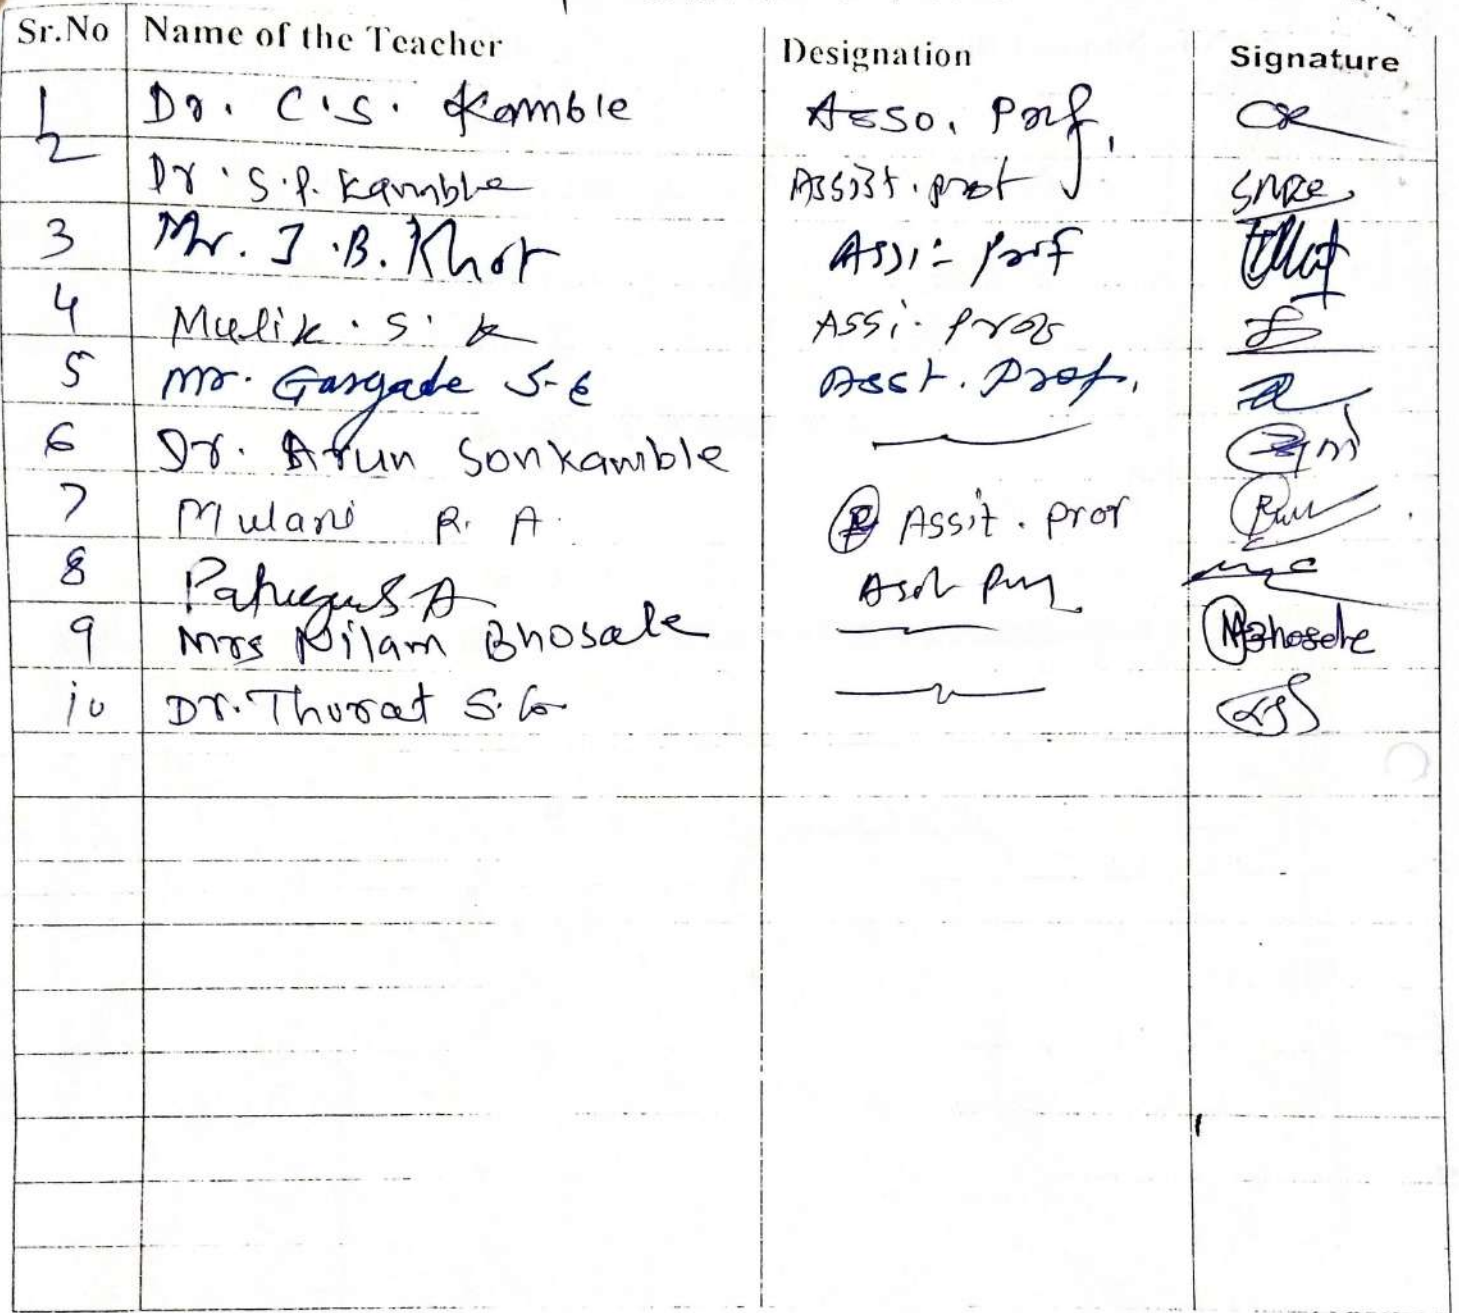 Sr.No Name of the Teacher Designation Signature
1 Dr. C.S. Kamble Asso. Prof.
2 Dr. S.P. Kamble Assist. prof
3 Mr. J.B. Khot Assi- prof
4 Mulik. S. K Assi. Prof
5 Mr. Gargade S-E Asst. Prof.
6 Dr. Arun Sonkamble
7 Mulani R. A. Assit. prof
8
9 Mrs Nilam Bhosale Bhosale
10 Dr. Thorat S.G.